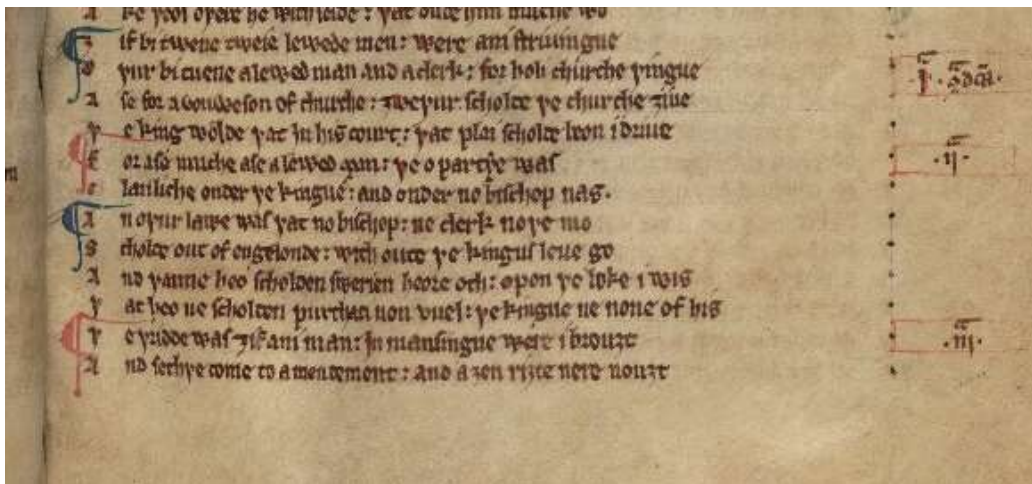 A ke þeos oþere he with seide : þat ouȝte him muche wo
ȝ if bi twene tweie lewede men : were ani striuingue
O þur bi tuene a lewed man and a clerk : for holi churche þingue
A se for a vouweson of churche : ȝweþur scholde þe churche ȝiue
þ e king wolde þat in his court : þat plai scholde beon i driue
F or ase muche ase a lewed man : þe o partye was .ij.
C lanliche onder þe kingue : and onder no bischop nas .
A n oþur lawe was þat no bischop : ne clerk noþe mo
S cholde out of engelonde : with oute þe kingus leue go
A nd þanne heo scholden swerien heore oth : opon þe boke i wis
þ at heo ne scholden purchaci non vuel : þe kingue ne none of his
þ e þridde was ȝif ani man : In mansingue were i brouȝt .iij.
A nd sethþe come to amendement : and aȝen riȝte nere nouȝt